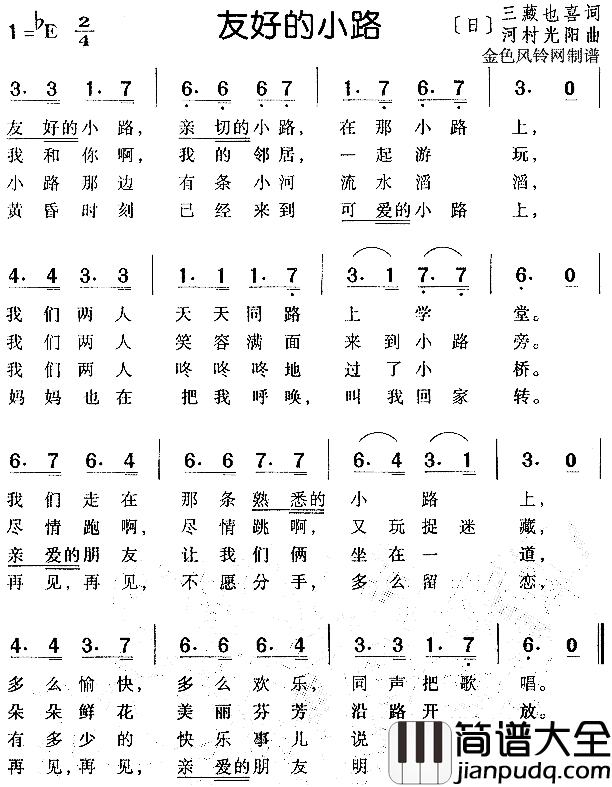 友好的小路
1=♭E 2/4
〔日〕三藏也喜 词
河村光阳 曲
金色风铃网制谱
3. 3 1. 7 | 6. 6 6. 7 | 6. 7 1. 7 | 3. 0 |
友 好的小路， 亲 切的小路， 在那小路 上，
我和你啊， 我的邻居， 一起游 玩，
小路那边 有条小河 流水滔 滔，
黄昏时刻 已经来到 可 爱的小路上，
4. 4 3. 3 | 1. 1 1. 7 | 3. 1 7. 7 | 6. 0 |
我们两人 天天同路 上 学 堂。
我们两人 笑容满面 来到小路 旁。
我们两人 咚咚咚地 过了小 桥。
妈妈也在 把我呼唤， 叫我回家 转。
6. 7 6. 4 | 6. 6 7. 7 | 6. 4 3. 1 | 3. 0 |
我们走在 那条熟 悉的 小 路 上，
尽情跑啊， 尽情跳啊， 又玩捉迷 藏，
亲 爱的朋友 让我们俩 坐在一 道，
再见，再见， 不愿分手， 多么留 恋，
4. 4 3. 7 | 6. 6 6. 4 | 3. 3 1. 7 | 6. 0 ‖
多么愉快， 多么欢乐， 同声把歌 唱。
朵朵鲜花 美丽芬芳 沿路开 放。
有多少的 快乐事儿 说
再见，再见， 亲 爱的朋友 明
简谱大全
jianpudq.com